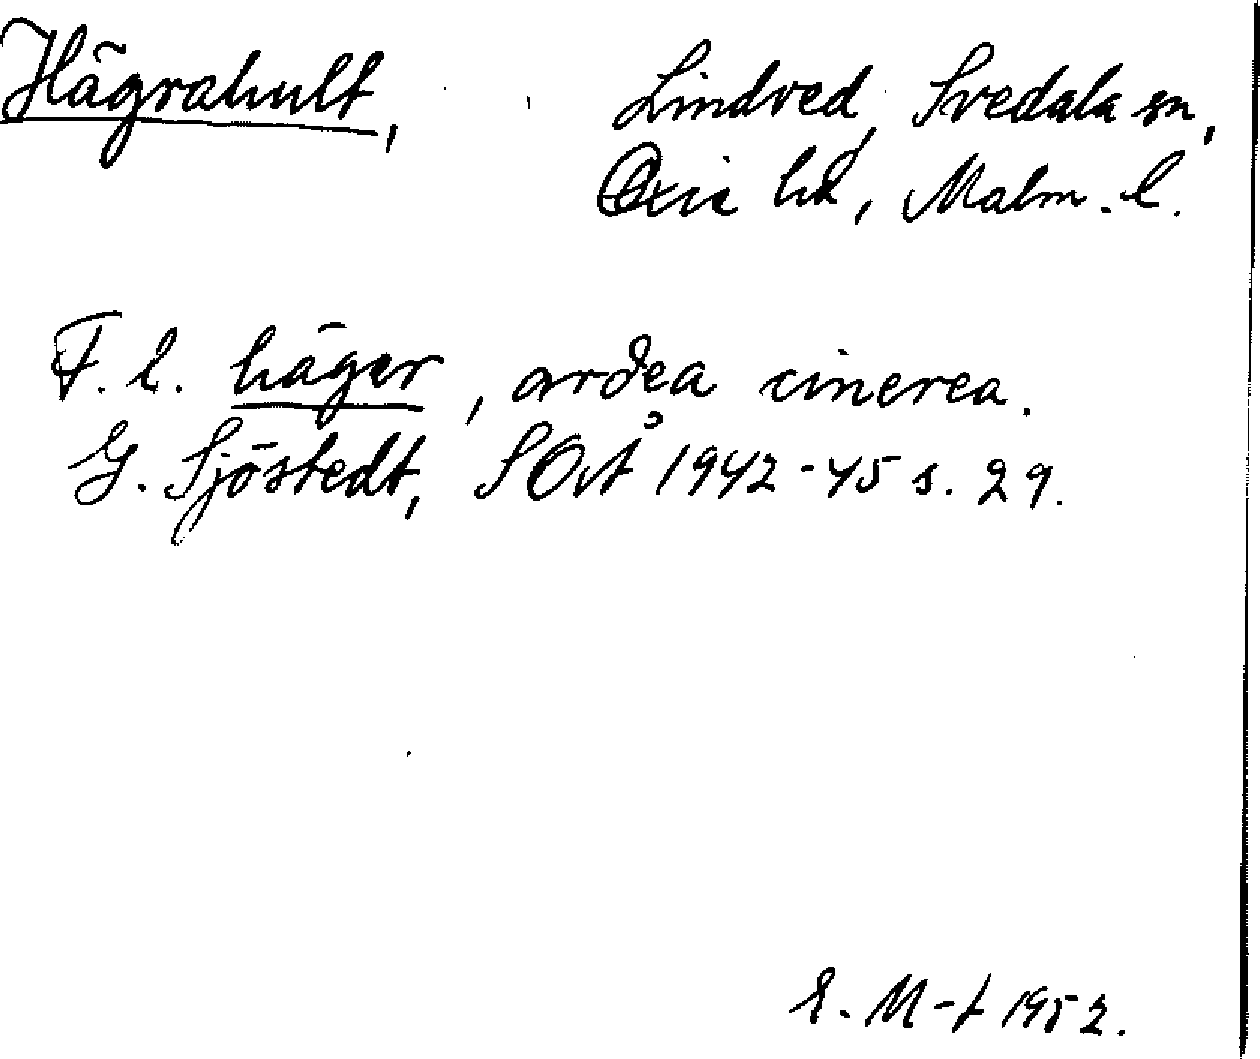 Hägrahult, Lindved, Svedala sn,
Oxie hd, Malm. l.
F. l. häger, ardea cinerea.
G. Sjöstedt, SOÅ 1942-45 s. 29.
E. M-t 1952.